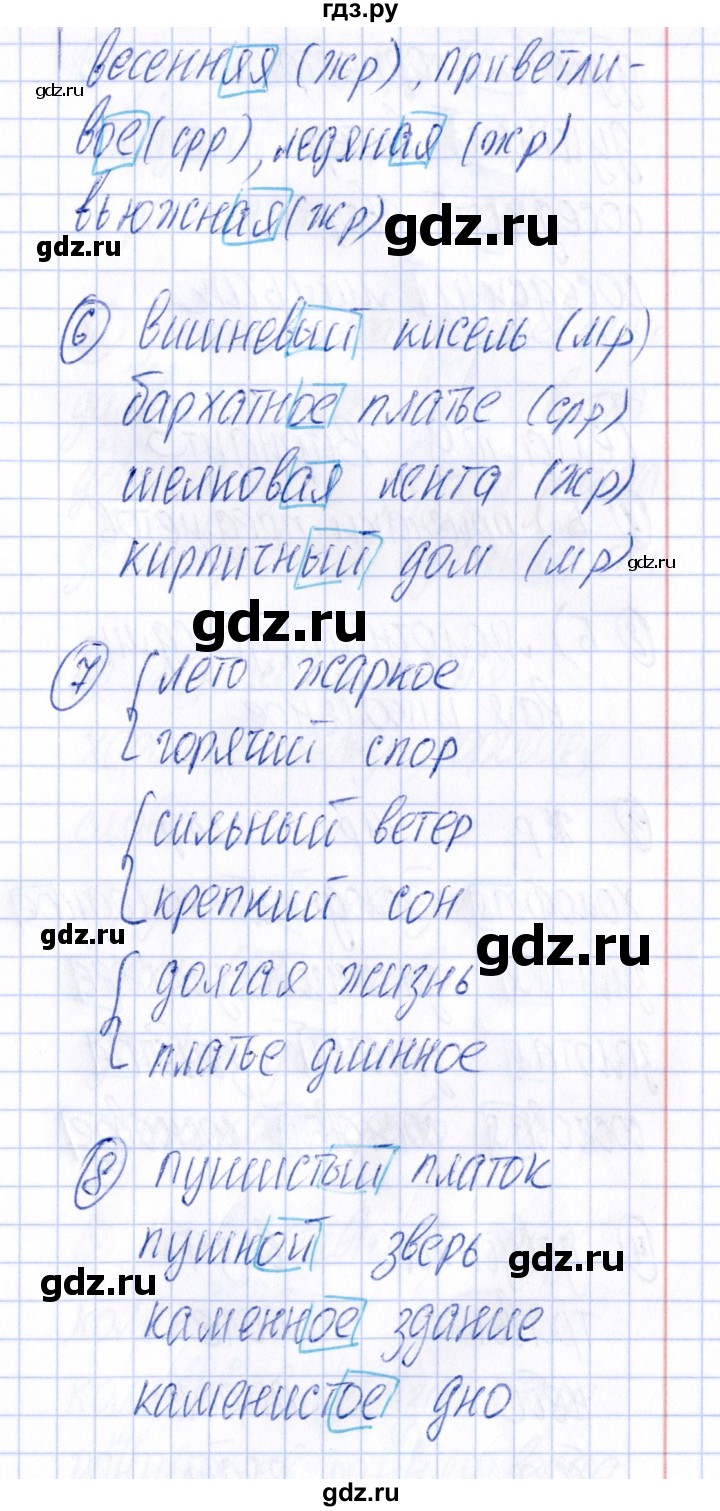 гдз.ру
весенняя (жр), приветли-
gdz.ru
вое (срр), ледяная (жр)
вьюжная (жр)
gdz.ru
gdz.ru
6 вишневый кисель (мр)
бархатное платье (срр)
шелковая лента (жр)
кирпичный дом (мр)
gdz.ru
gdz.ru
7 лето жаркое
горячий спор
сильный ветер
крепкий сон
gdz.ru
gdz.ru
долгая жизнь
платье длинное
8 пушистый платок
пушной зверь
gdz.ru
gdz.ru
каменное здание
каменистое дно
gdz.ru